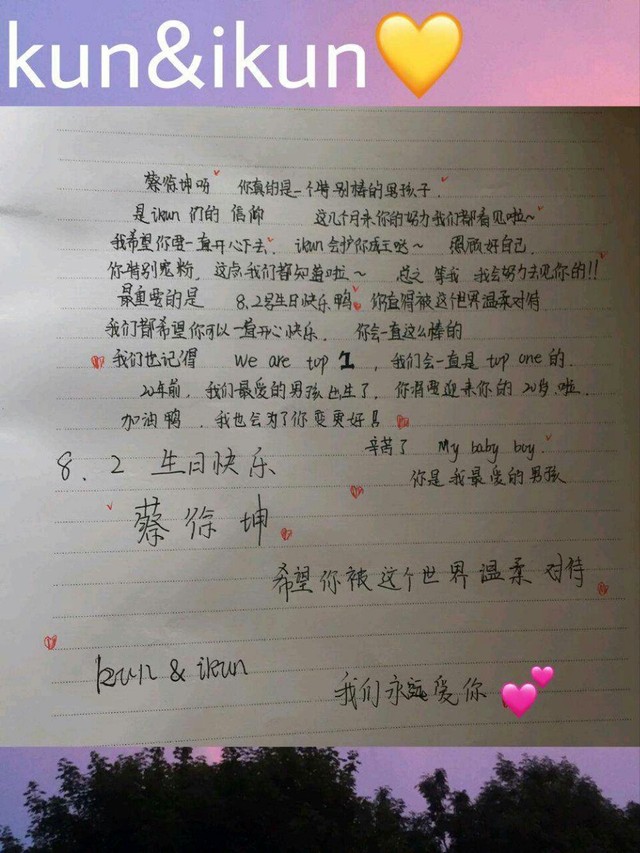 kun&ikun
蔡徐坤呀 你真的是一个特别棒的男孩子.
是ikun们的信仰 这几个月来你的努力我们都看见啦~
我希望你要一直开心下去. ikun会护你成王哒~ 照顾好自己.
你特别宠粉, 这点我们都知道啦~ 总之 等我 我会努力去见你的!!
最重要的是 8.2号生日快乐鸭. 你值得被这个世界温柔对待
我们都希望你可以一直开心快乐. 你会一直这么棒的
我们也记得 We are top 1, 我们会一直是 top one 的.
20年前, 我们最爱的男孩出生了. 你将要迎来你的20岁啦.
加油鸭. 我也会为了你变更好
辛苦了 My baby boy.
你是我最爱的男孩
8.2 生日快乐
蔡徐坤
希望你被这个世界温柔对待
kun & ikun
我们永远爱你